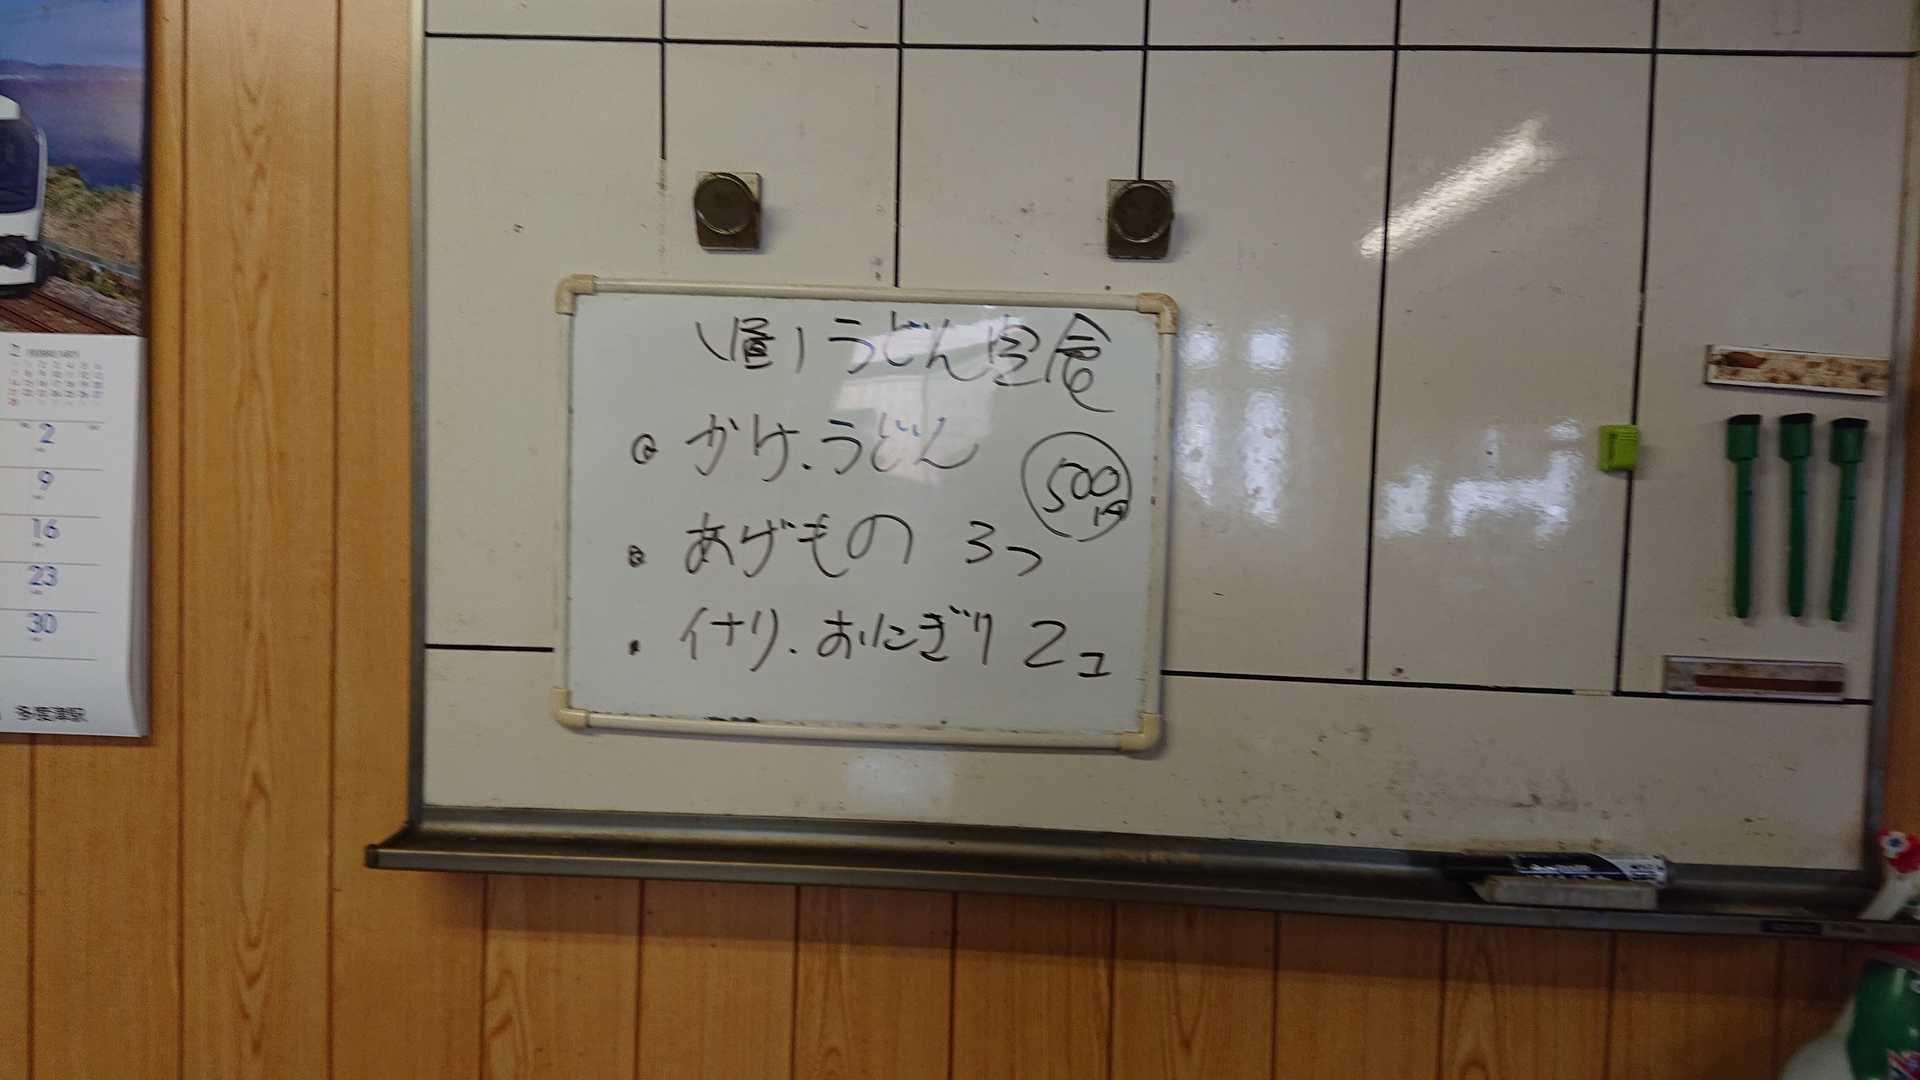 (昼)うどん定食
かけ.うどん
500円
あげもの 3つ
イナリ.おにぎり 2コ
2
2
9
16
23
30
多度津駅